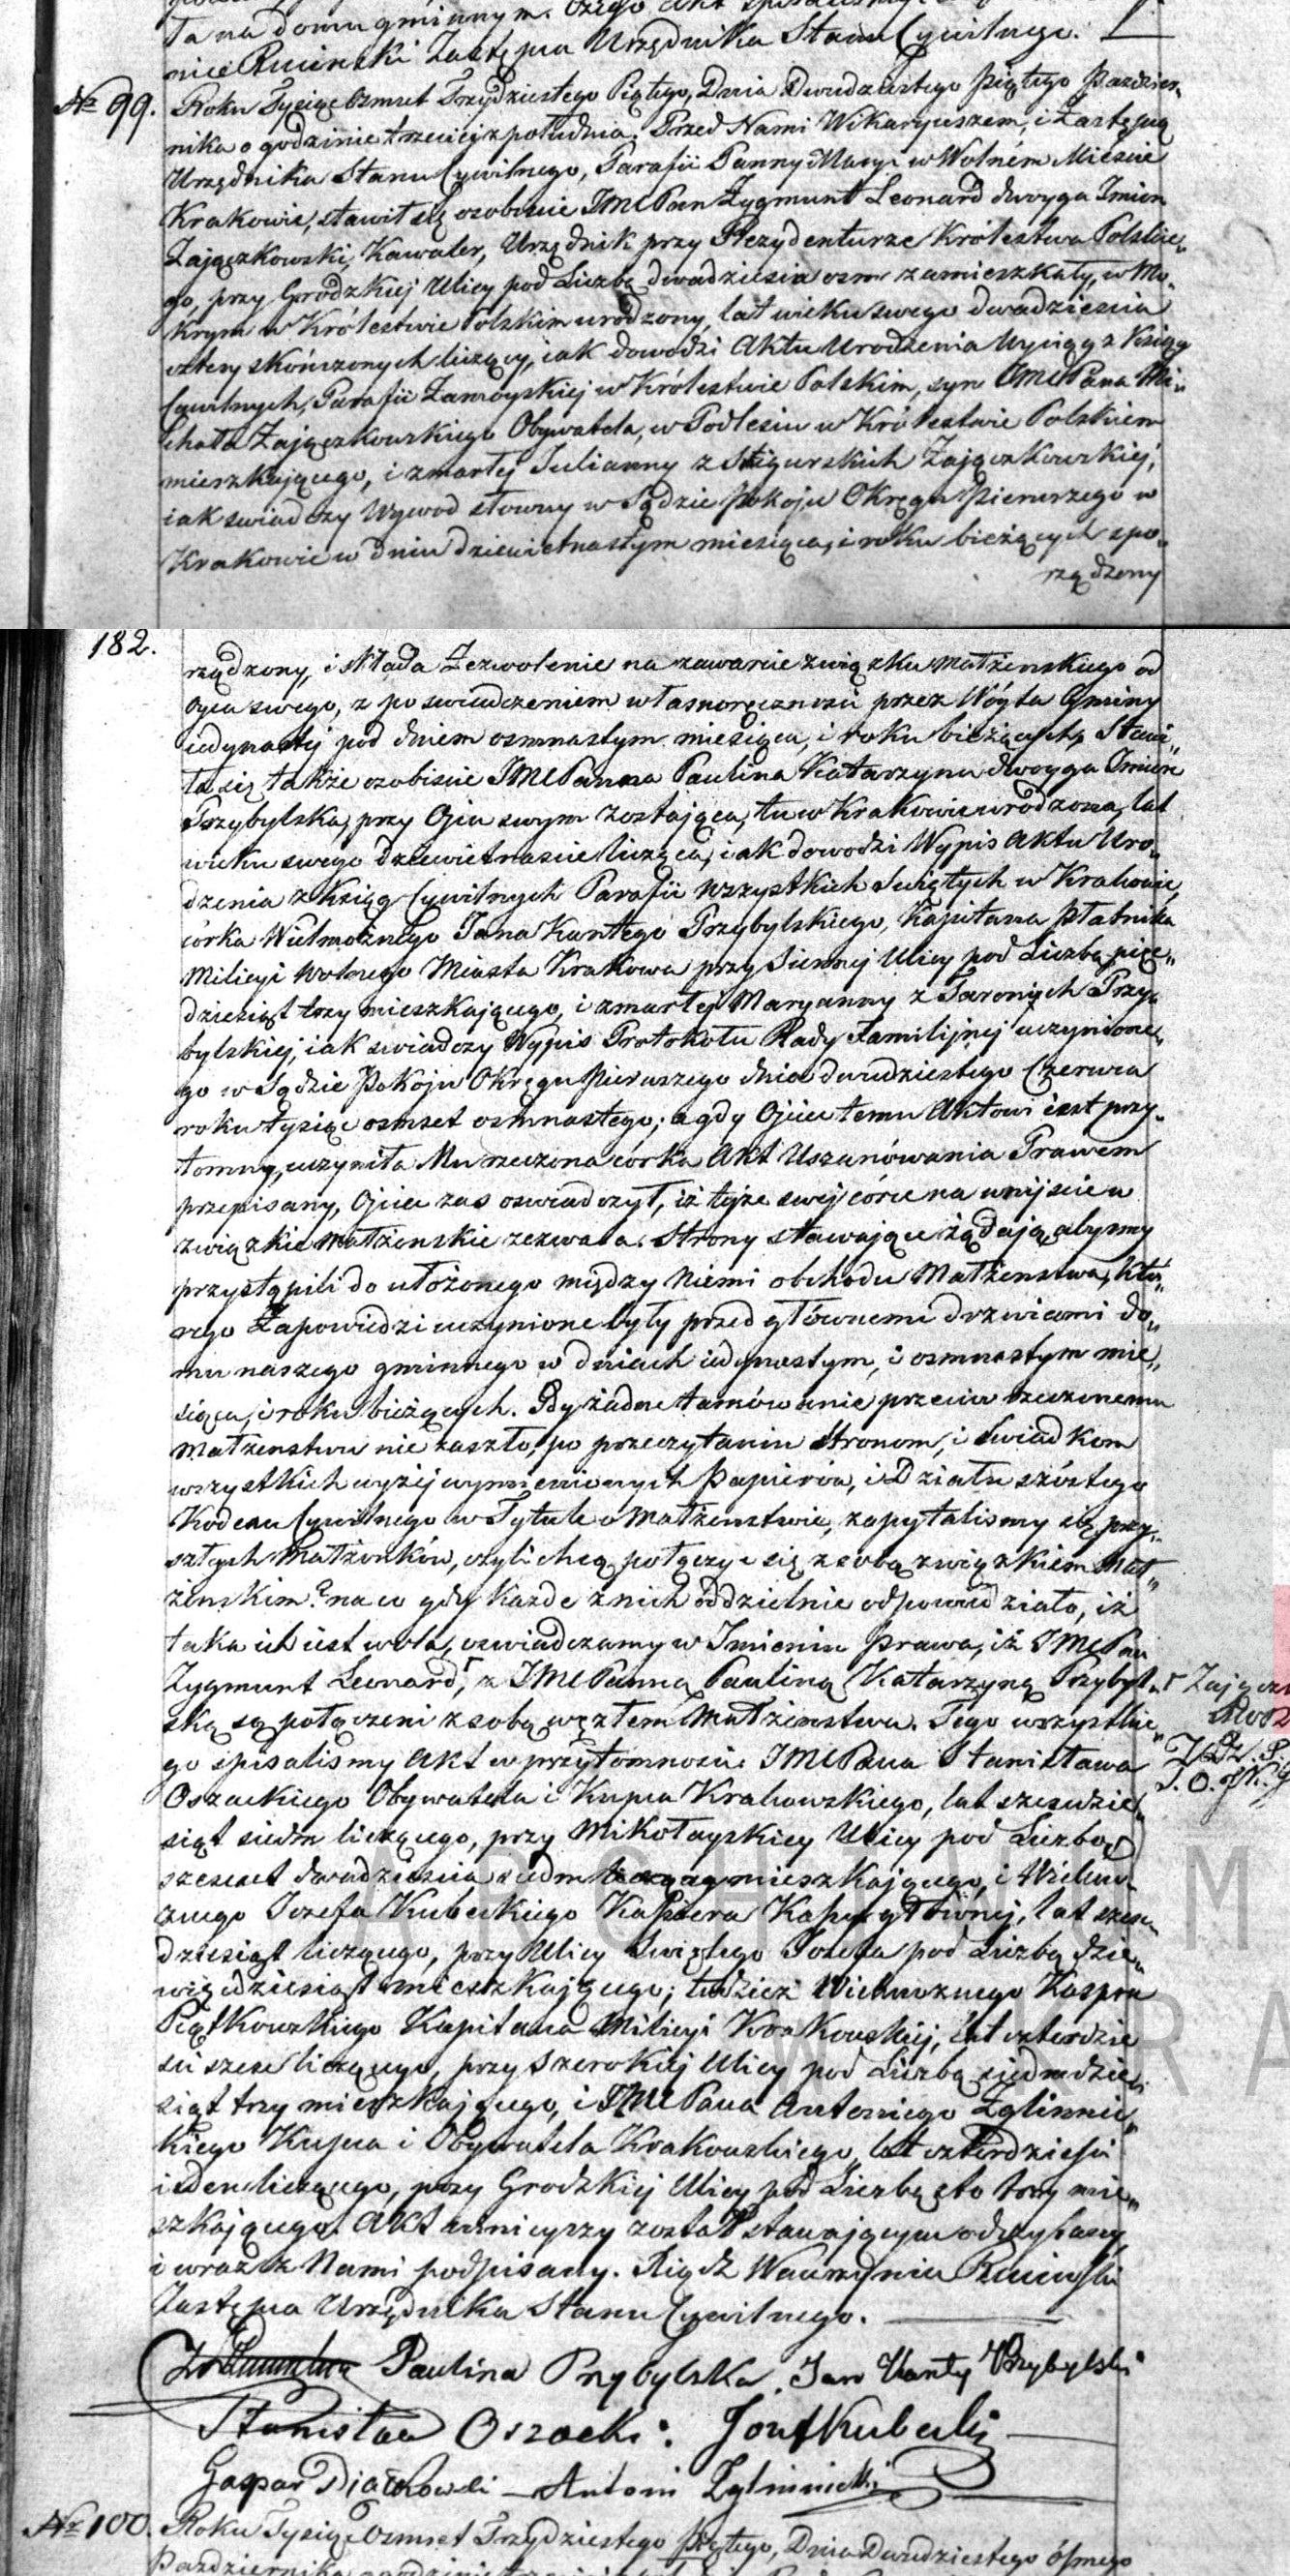 ta na domu gminnym. Czego akt
nice Rusinski Zastępca Urzędnika Stanu Cywilnego.
№ 99. Roku Tysiąc Osmset Trzydziestego Piątego, Dnia Dwudziestego piątego Paździer„
nika o godzinie trzeciej z południa. Przed Nami Wikaryuszem, i Zastępcą
Urzędnika Stanu Cywilnego, Parafii Panny Maryi w Wolném Mieście
Krakowie, stawił się osobiście JMCPan Zygmunt Leonard dwojga Imion
Zajączkowski, Kawaler, Urzędnik przy Rezydenturze Królestwa Polskie„
go, przy Grodzkiej Ulicy pod Liczbą dwadzieścia osm zamieszkały, w Mo„
krym w Królestwie Polskim urodzony, lat wieku swego dwadzieścia
cztery skończonych liczący, iak dowodzi Aktu Urodzenia Wyciąg z Xsiąg
Cywilnych, Parafii Zamoyskiej w Królestwie Polskim, syn JMCPana Mi„
chała Zajączkowskiego Obywatela, w Podlesiu w Królestwie Polskiem
mieszkającego, i zmarłej Julianny z Ścigurskich Zajączkowskiej,
iak swiadczy Wywod słowny w Sądzie Pokoju Okręgu Pierwszego w
Krakowie w dniu dziewietnastym miesiąca, i roku bieżących spo„
rządzony
182.
rządzony, i składa Zezwolenie na zawarcie związku małżeńskiego od
Ojca swego, z poswiadczeniem własnoręczności przez Wójta Gminy
udynastej pod dniem osmnastym miesiąca, i roku bieżących, Stawi„
ła się także osobiscie JMCPanna Paulina Katarzyna dwoyga Imion
Przybylska, przy Ojcu swym zostająca, tu w Krakowie urodzona, lat
wieku swego dziewietnaście licząca, iak dowodzi Wypis Aktu Uro„
dzenia z Xsiąg Cywilnych Parafii Wszystkich Swiętych w Krakowie,
córka Wielmożnego Jana Kantego Przybylskiego, Kapitana Płatnika
Milicyi Wolnego Miasta Krakowa przy Siennej Ulicy pod Liczbą pięć„
dziesiąt trzy mieszkającego, i zmarłej Maryanny z Taronich Przy„
bylskiej, iak swiadczy Wypis Protokołu Rady Familijnej uczynione„
go w Sądzie Pokoju Okręgu Pierwszego dnia dwudziestego Czerwca
roku tysiąc osmset osmnastego; a gdy Ojciec temu Aktowi iest przy„
tomny, uczyniła Mu rzeczona córka Akt Uszanówania Prawem
przepisany, Ojciec zas oswiadczył, iż tejże swej córce na wnijscie w
związki małżenskie zezwala. Strony stawające żądają, abysmy
przystąpili do ułożonego między niemi obchodu Małżenstwa, któ„
rego Zapowiedzi uczynione były przed głównemi drzwiami do„
mu naszego gminnego w dniach iedynastym, i osmnastym mie„
siąca, i roku bieżących. Gdy żadne tamówanie przeciw rzeczonemu
Małżenstwu nie zaszło, po przeczytaniu Stronom, i Swiadkom
wszystkich wyżej wymienionych Papierów, i Działu szóstego
Kodexu Cywilnego w Tytule o Małżenstwie, zapytalismy się przy„
szłych Małżonków, czyli chcą połączyć się z sobą związkiem Mał„
żenskim? na co gdy każde z nich oddzielnie odpowiedziało, iż
taka ich iest wola, oswiadczamy w Imieniu Prawa, iż JMCPan
Zygmunt Leonard z JMCPanną Pauliną Katarzyną Przybyl„
ską są połączeni z sobą węzłem Małżenstwa. Tego wszystkie„
go spisalismy Akt w przytomnosci JMCPana Stanisława
Oszackiego Obywatela i Kupca Krakowskiego, lat szescdzie„
siąt siedm liczącego, przy Mikołayskiey Ulicy pod Liczbą
szescset dwadzieścia siedm mieszkającego, i Wielmo„
żnego Jozefa Kubeckiego Kassiera Kassy głównej, lat szesc„
dziesiąt liczącego, przy Ulicy Swiętego Jozefa pod Liczbą dzie„
więdziesiąt mieszkającego; tudzież Wielmożnego Kaspra
Piątkowskiego Kapitana Milicyi Krakowskiej, lat czterdzie
sci szesc liczącego, przy Szerokiej Ulicy pod Liczbą siedmdzie„
siąt trzy mieszkającego, i JMCPana Antoniego Zglinnic„
kiego Kupca i Obywatela Krakowskiego, lat czterdzieści
ieden liczącego, przy Grodzkiej Ulicy pod Liczbą sto trzy mie„
szkającego. Akt ninieyszy został stawającym odczytany,
i wraz z Nami podpisany. Xiądz Wawrzyniec Rusinski
Zastępca Urzędnika Stanu Cywilnego.
Zającz
ARCHIWUM
W KRA
Paulina Przybylska. Jan Kanty Przybylski
Stanisław Oszacki. Jozef Kubecki
Gaspar Piątkowski — Antoni Zglinnicki
№ 100. Roku Tysiąc Osmset Trzydziestego piątego, Dnia Dwudziestego ósmego
Pazdziernika